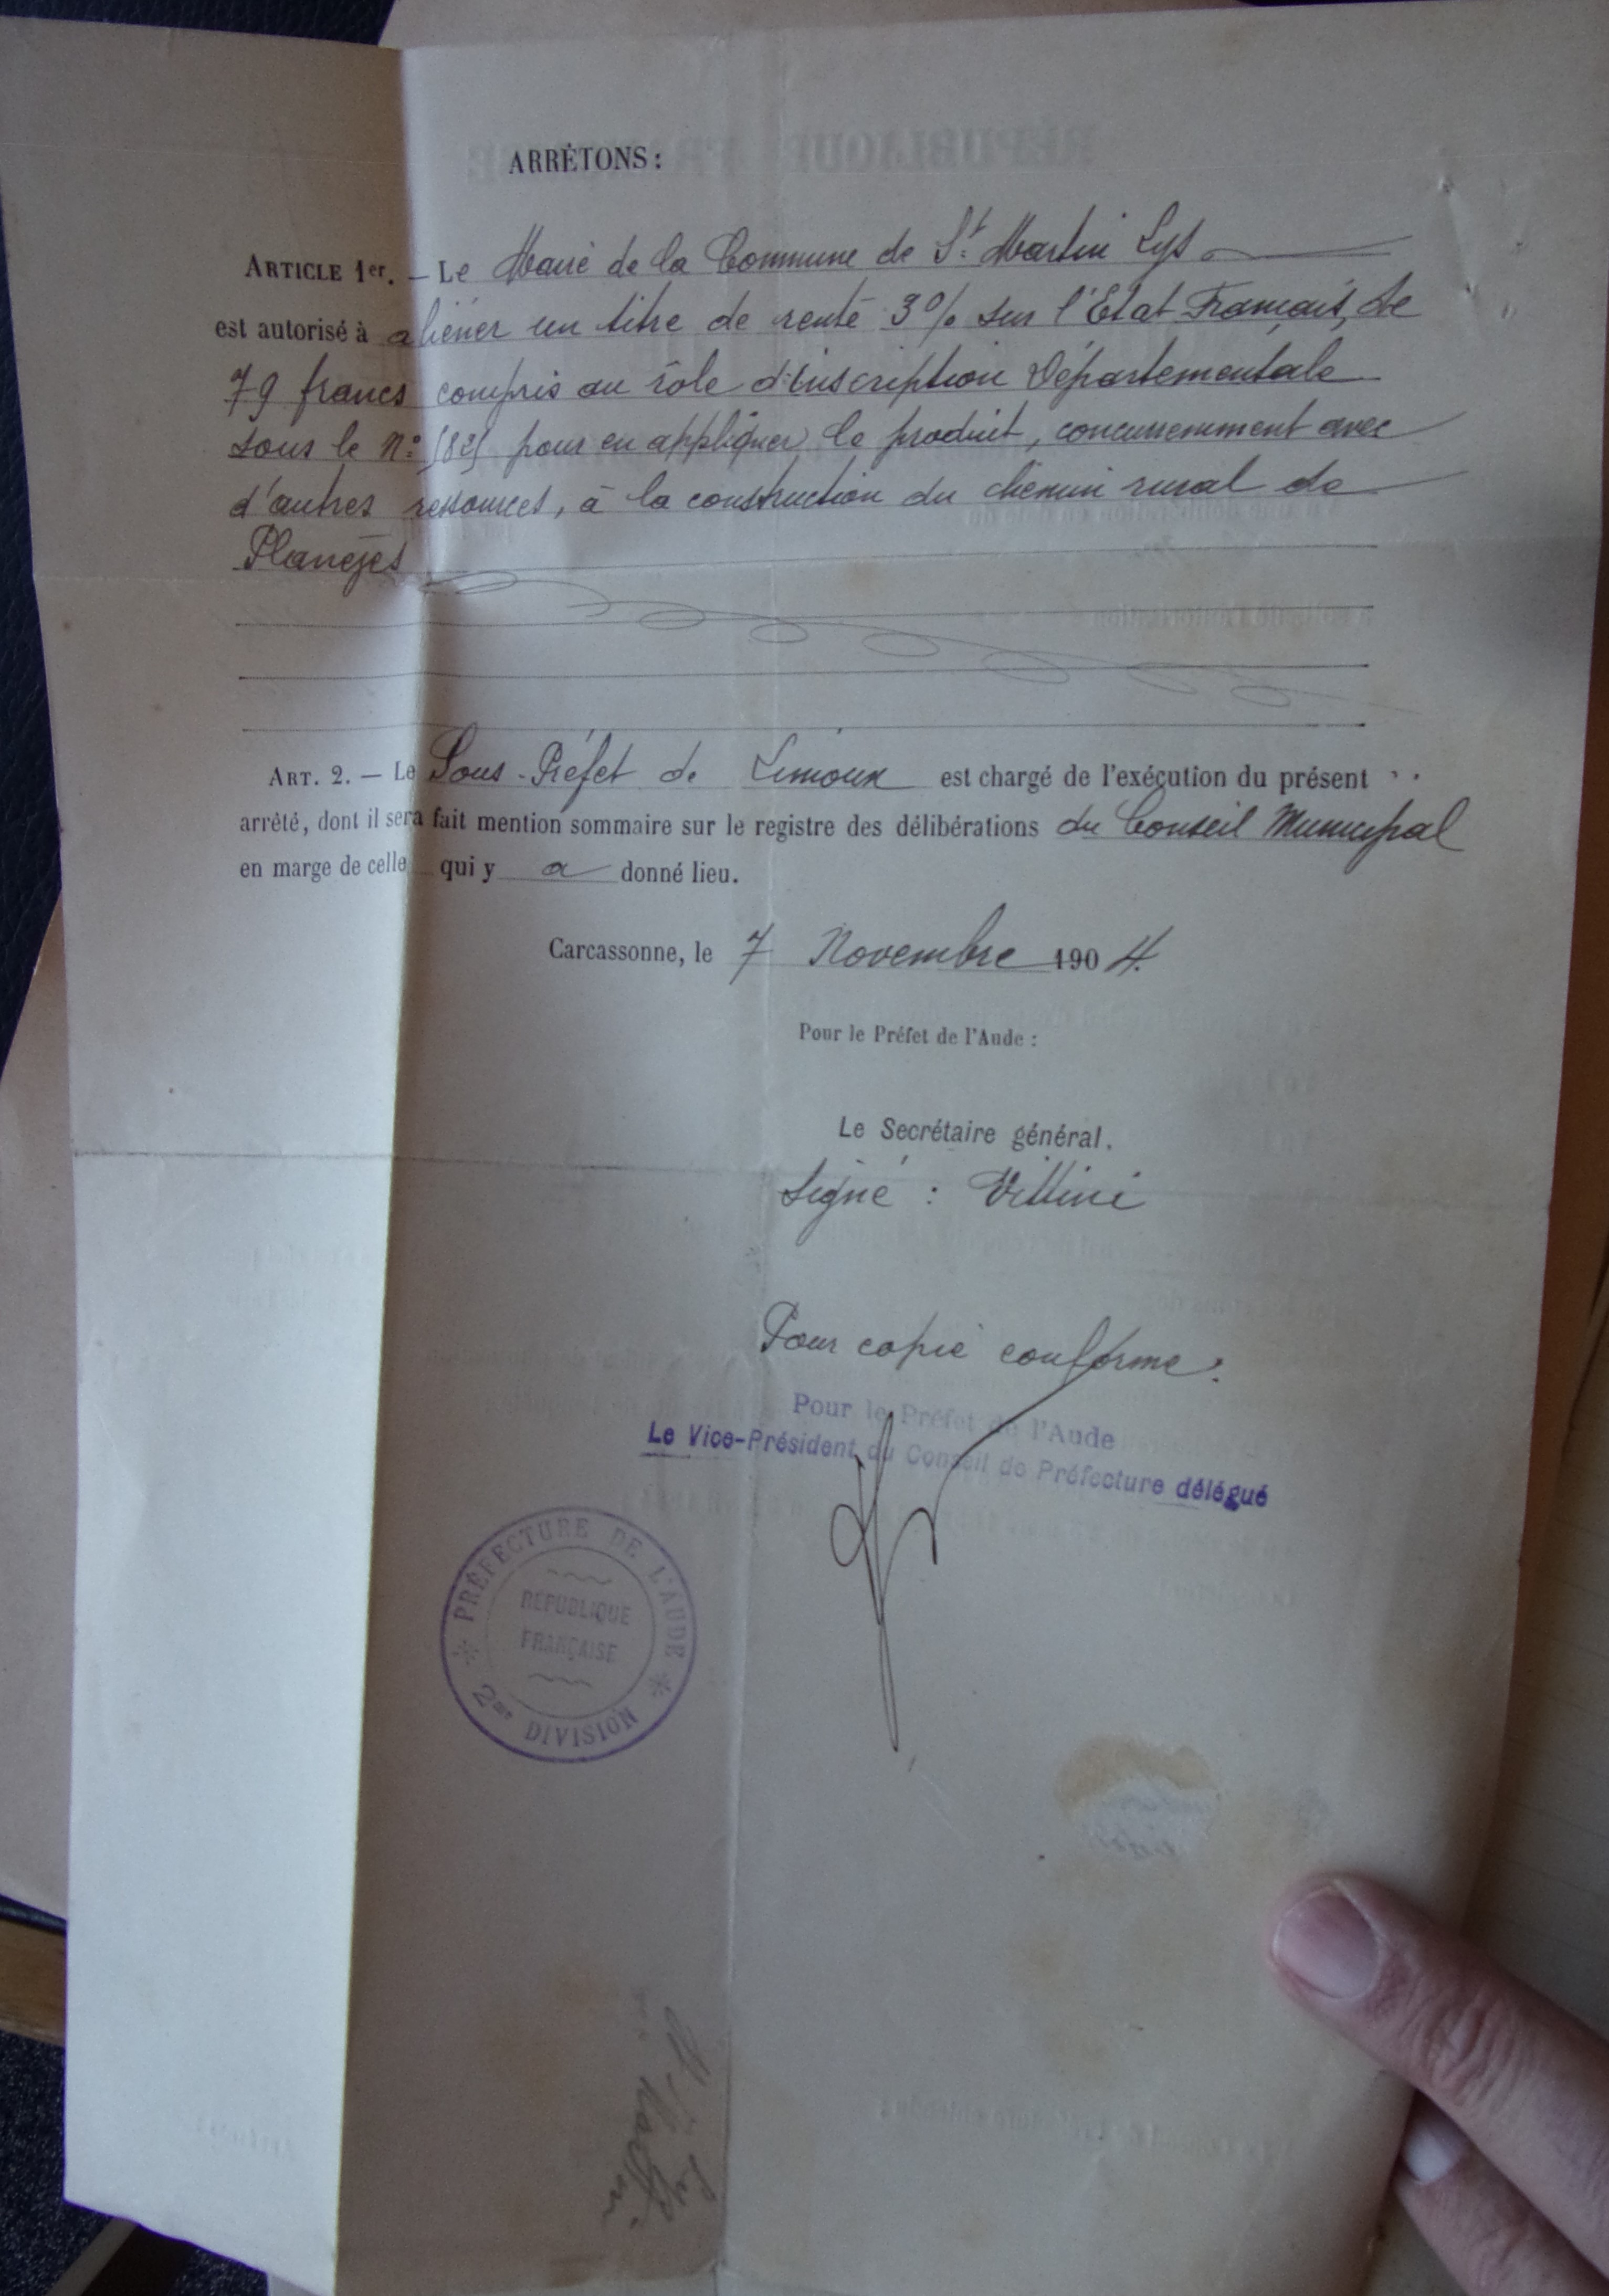 ARRÊTONS :
ARTICLE 1er. — Le Maire de la Commune de St Martin Lys
est autorisé à aliéner un titre de rente 3% sur l'Etat Français, de
79 francs compris au rôle d'inscription Départementale
sous le N° pour en appliquer le produit, concurremment avec
d'autres ressources, à la construction du chemin rural de
Planezes
ART. 2. — Le Sous-Préfet de Limoux est chargé de l'exécution du présent
arrêté, dont il sera fait mention sommaire sur le registre des délibérations du Conseil Municipal
en marge de celle qui y a donné lieu.
Carcassonne, le 7 Novembre 1904.
Pour le Préfet de l'Aude :
Le Secrétaire général.
Signé : Vittini
Pour copie conforme :
Pour le Préfet de l'Aude
Le Vice-Président du Conseil de Préfecture délégué
PRÉFECTURE DE L'AUDE
RÉPUBLIQUE
FRANÇAISE
2me DIVISION
St Martin
Lys